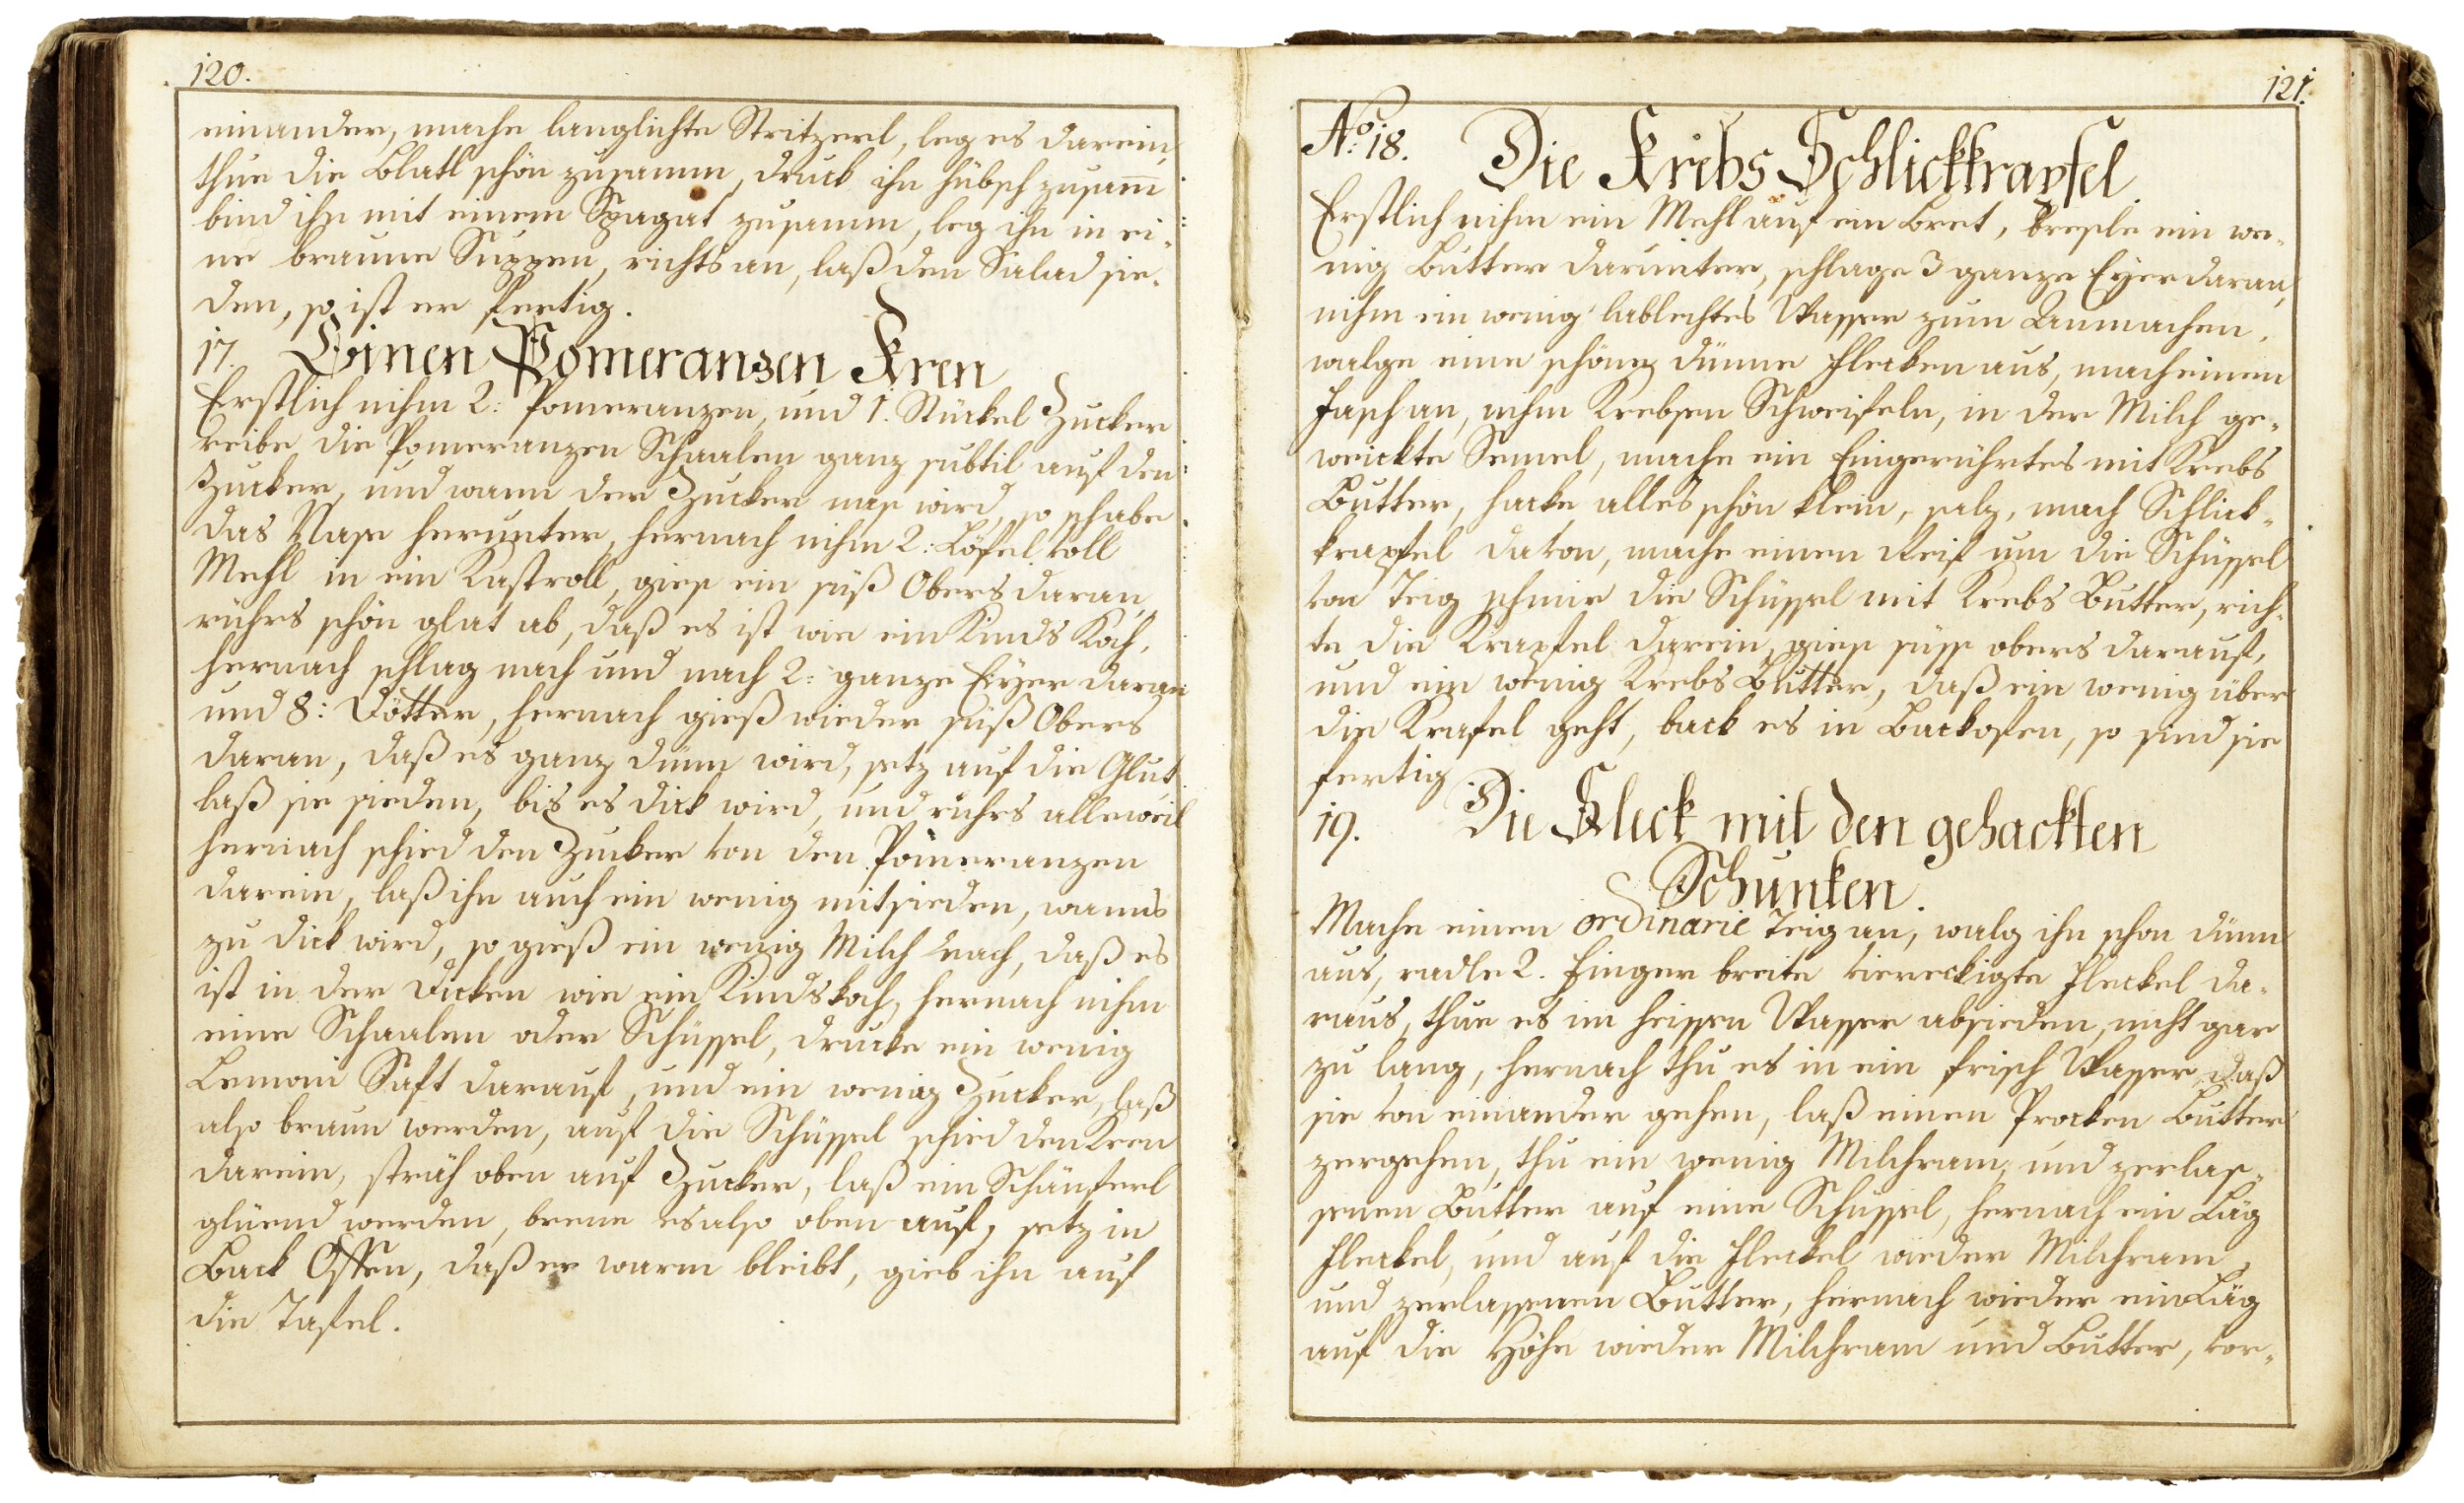 120.
einander, mache langlichte Stritzerl, leg es darein,
thue die Blatl schön zusamm, druck ihn hübsch zusam̄
bind ihn mit einem Spagat zusamm, leg ihn in ei-
ne braune Suppen, richts an, laß den Salad sie-
den, so ist er fertig.
17. Einen Pomeranzen Kren
Erstlich nihm 2: Pomeranzen, und 1. Stückel Zucker
reibe die Pomeranzen Schaalen ganz subtil auf den
Zucker, und wann der Zucker nass wird, so schabe
das Nasse herunter, hernach nihm 2: Löfel voll
Mehl in ein Kastroll, giess ein süß Obers daran,
rührs schön glat ab, daß es ist wie ein Kinds Koch,
hernach schlag nach und nach 2: ganze Eyer daran
und 8: Dötter, hernach gieß wieder süß Obers
daran, daß es ganz dünn wird, setz auf die Glut,
laß sie sieden, bis es dick wird, und rührs alleweil
hernach schied den Zucker von den Pomeranzen
darein, laß ihn auch ein wenig mitsieden, wanns
zu dick wird, so gieß ein wenig Milch nach, daß es
ist in der Dicken wie ein Kindskoch, hernach nihm
eine Schaalen oder Schüssel, drucke ein wenig
Lemoni Saft darauf, und ein wenig Zucker, laß
also braun werden, auf die Schüssel schied den Kren
darein, sträh oben auf Zucker, laß ein Schäuferl
glüend werden, brenne es also oben auf, setz in
Back Offen, daß er warm bleibt, gieb ihn auf
die Tafel.
121.
No: 18. Die Krebs Schlickkrapfel
Erstlich nihm ein Mehl auf ein Bret, bresle ein we-
nig Butter darunter, schlage 3 ganze Eyer daran,
nihm ein wenig lablechtes Wasser zum Anmachen,
walge eine schöne dünne Flecken aus, mach einen
Fasch an, nihm Krebsen Schweifeln, in der Milch ge-
weickte Semel, mache ein Eingerührtes mit Krebs
Butter, hacke alles schön klein, salz, mach Schlick-
krapfel davon, mache einen Reif um die Schüssel
von Teig schmir die Schüssel mit Krebs Butter, rich-
te die Krapfel darein, giess süsse obers darauf,
und ein wenig Krebs Butter, daß ein wenig über
die Krafel geht, back es in Backofen, so sind sie
fertig
19. Die Fleck mit den gehackten
Schunken.
Mache einen ordinarie Teig an, walg ihn schon dünn
aus, radle 2. Finger breite viereckigte Fleckel da-
raus, thue es im heissen Wasser absieden, nicht gar
zu lang, hernach thu es in ein frisch Wasser, daß
sie von einander gehen, laß einen Procken Butter
zergehen, thu ein wenig Milchram, und zerlas-
senen Butter auf eine Schüssel, hernach ein Läg
Fleckel, und auf die Fleckel wieder Milchram,
und zerlassenen Butter, hernach wieder ein Läg
auf die Höhe wieder Milchram und Butter, vor-